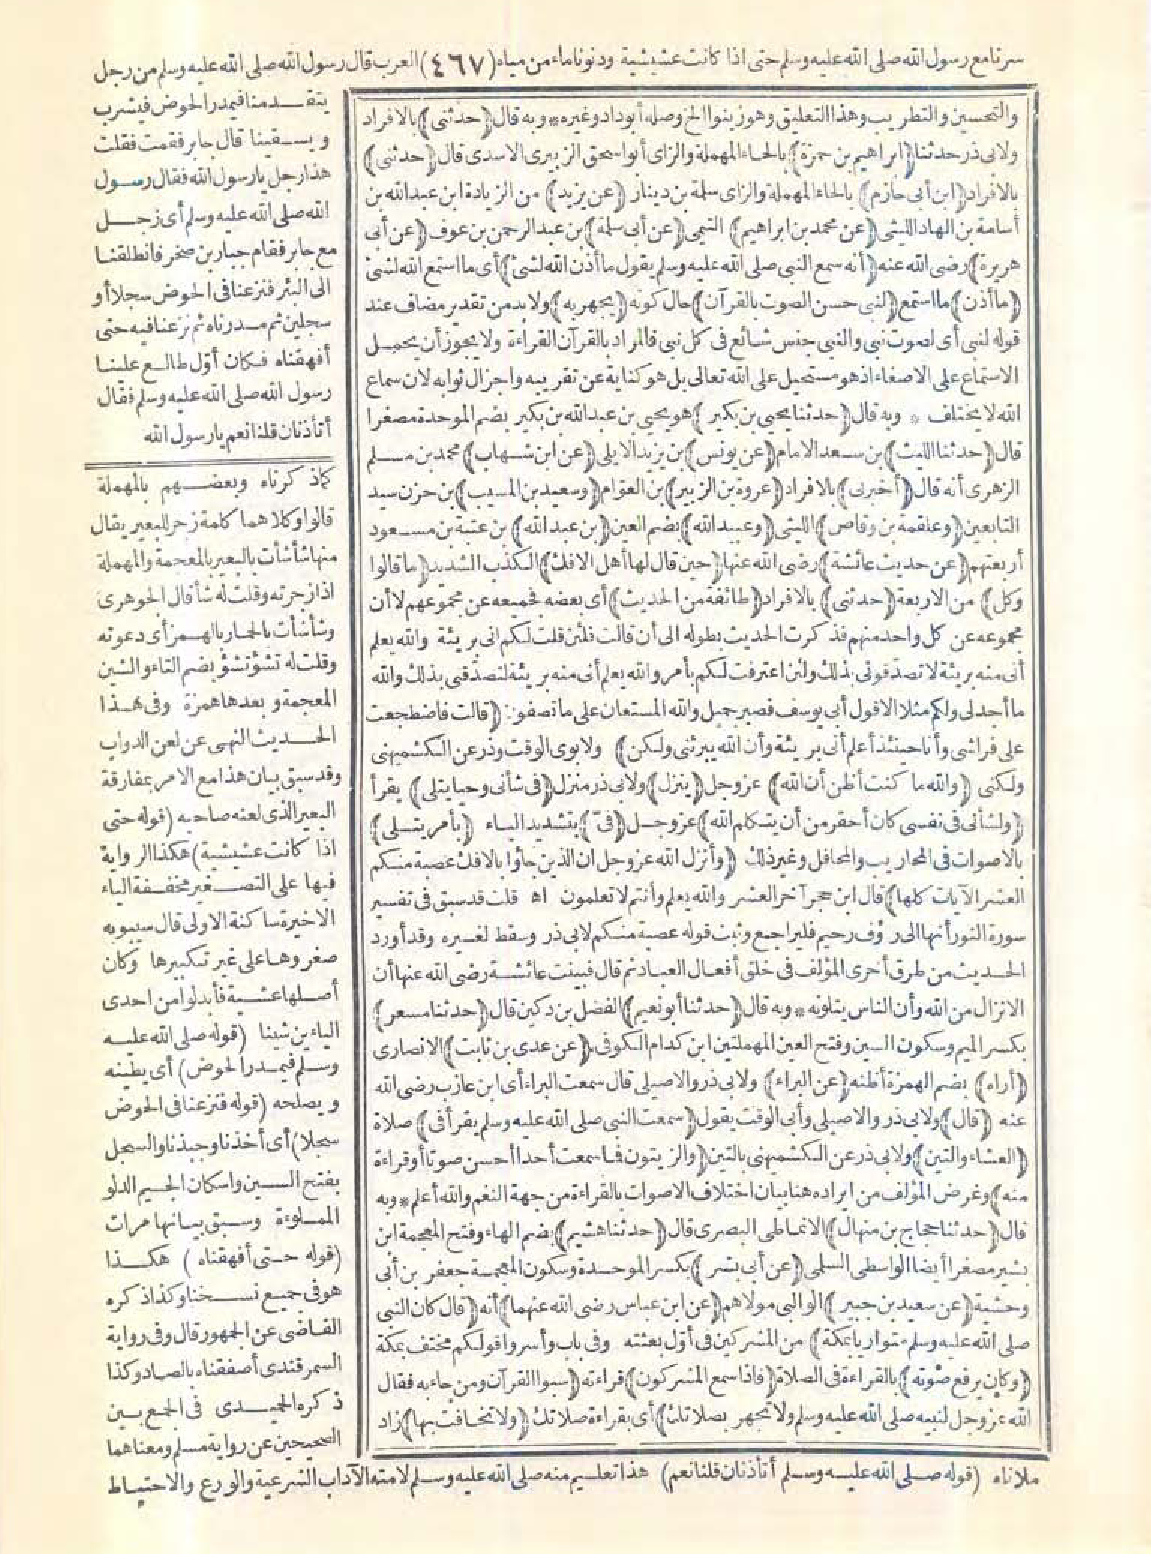 سرنا مع رسول الله صلى الله عليه وسلم حتى اذا كانت عشيشية ودنونا ماء من مياه (٤٦٧) العرب قال رسول الله صلى الله عليه وسلم من رجل
يتقدمنا فيمدر الحوض فيشرب
ويسقينا قال جابر فقمت فقلت
هذا رجل يا رسول الله فقال رسول
الله صلى الله عليه وسلم أى رجل
مع جابر فقام جبار بن صخر فانطلقنا
الى البئر فنزعنا فى الحوض سجلا أو
سجلين ثم مدرناه ثم نزعنا فيه حتى
أفهقناه فكان أوّل طالع علينا
رسول الله صلى الله عليه وسلم فقال
أتأذنان قلنا نعم يا رسول الله
والتحسين والتطريب وهذا التعليق وهو زينوا الخ وصله أبو داود وغيره * وبه قال (حدثنى) بالافراد
ولابى ذر حدثنا (ابراهيم بن حمزة) بالحاء المهملة والزاى أبو اسحق الزبيرى الاسدى قال (حدثنى)
بالافراد (ابن أبى حازم) بالحاء المهملة والزاى سلمة بن دينار (عن يزيد) من الزيادة ابن عبد الله بن
أسامة بن الهاد الليثى (عن محمد بن ابراهيم) التيمى (عن أبى سلمة) بن عبد الرحمن بن عوف (عن أبى
هريرة) رضى الله عنه (أنه سمع النبى صلى الله عليه وسلم يقول ما أذن الله لشئ) أى ما استمع الله لشئ
(ما أذن) ما استمع (لنبى حسن الصوت بالقرآن) حال كونه (يجهر به) ولا بد من تقدير مضاف عند
قوله لنبى أى لصوت نبى والنبى جنس شائع فى كل نبى فالمراد بالقرآن القراءة ولا يجوز أن يحمل
الاستماع على الاصغاء اذ هو مستحيل على الله تعالى بل هو كناية عن تقريبه واجزال ثوابه لان سماع
الله لا يختلف * وبه قال (حدثنا يحيى بن بكير) هو يحيى بن عبد الله بن بكير بضم الموحدة مصغرا
قال (حدثنا الليث) بن سعد الامام (عن يونس) بن يزيد الايلى (عن ابن شهاب) محمد بن مسلم
الزهرى أنه قال (أخبرنى) بالافراد (عروة بن الزبير) بن العوّام (وسعيد بن المسيب) بن حزن سيد
التابعين (وعلقمة بن وقاص) الليثى (وعبيد الله) بضم العين (بن عبد الله) بن عتبة بن مسعود
أربعتهم (عن حديث عائشة) رضى الله عنها (حين قال لها أهل الافك) الكذب الشديد (ما قالوا
وكل) من الاربعة (حدثنى) بالافراد (طائفة من الحديث) أى بعضه فجميعه عن مجموعهم لا أن
مجموعه عن كل واحد منهم فذكرت الحديث بطوله الى أن قالت فلئن قلت لكم انى بريئة والله يعلم
أنى منه بريئة لا تصدقونى بذلك ولئن اعترفت لكم بأمر والله يعلم أنى منه بريئة لتصدقنى بذلك والله
ما أجد لى ولكم مثلا الا قول أبى يوسف فصبر جميل والله المستعان على ما تصفون (قالت فاضطجعت
على فراشى وأنا حينئذ أعلم أنى بريئة وأن الله يبرئنى ولكن) ولابوى الوقت وذر عن الكشميهنى
ولكنى (والله ما كنت أظن أن الله) عز وجل (ينزل) ولابى ذر منزل (فى شأنى وحيا يتلى) يقرأ
(ولشأنى فى نفسى كان أحقر من أن يتكلم الله) عز وجل (فىّ) بتشديد الياء (بأمر يتلى)
بالاصوات فى المحاريب والمحافل وغير ذلك (وأنزل الله عز وجل ان الذين جاؤا بالافك عصبة منكم
العشر الآيات كلها) قال ابن حجر آخر العشر والله يعلم وأنتم لا تعلمون اه قلت قد سبق فى تفسير
سورة النور أنها الى رؤف رحيم فليراجع وثبت قوله عصبة منكم لابى ذر وسقط لغيره وقد أورد
الحديث من طرق أخرى المؤلف فى خلق أفعال العباد ثم قال فبينت عائشة رضى الله عنها أن
الانزال من الله وأن الناس يتلونه * وبه قال (حدثنا أبو نعيم) الفضل بن دكين قال (حدثنا مسعر)
بكسر الميم وسكون السين وفتح العين المهملتين ابن كدام الكوفى (عن عدى بن ثابت) الانصارى
(أراه) بضم الهمزة أظنه (عن البراء) ولابى ذر والاصيلى قال سمعت البراء أى ابن عازب رضى الله
عنه (قال) ولابى ذر والاصيلى وأبى الوقت يقول (سمعت النبى صلى الله عليه وسلم يقرأ فى) صلاة
(العشاء والتين) ولابى ذر عن الكشميهنى بالتين (والزيتون فما سمعت أحدا أحسن صوتا أو قراءة
منه) وغرض المؤلف من ايراده هنا بيان اختلاف الاصوات بالقراءة من جهة النغم والله أعلم * وبه
قال (حدثنا حجاج بن منهال) الانماطى البصرى قال (حدثنا هشيم) بضم الهاء وفتح المعجمة ابن
بشير مصغرا أيضا الواسطى السلمى (عن أبى بشر) بكسر الموحدة وسكون المعجمة جعفر بن أبى
وحشية (عن سعيد بن جبير) الوالبى مولاهم (عن ابن عباس رضى الله عنهما) أنه (قال كان النبى
صلى الله عليه وسلم متواريا بمكة) من المشركين فى أوّل بعثته وفى باب وأسروا قولكم مختف بمكة
(وكان يرفع صوته) بالقراءة فى الصلاة (فاذا سمع المشركون) قراءته (سبوا القرآن ومن جاء به فقال
الله عز وجل لنبيه صلى الله عليه وسلم ولا تجهر بصلاتك) أى بقراءة صلاتك (ولا تخافت بها) زاد
كما ذكرناه وبعضهم بالمهملة
قالوا وكلاهما كلمة زجر للبعير يقال
منها شأشأت بالبعير بالمعجمة والمهملة
اذا زجرته وقلت له شأ قال الجوهرى
وشأشأت بالحمار بالهمز أى دعوته
وقلت له تشؤتشؤ بضم التاء والشين
المعجمة وبعدها همزة وفى هذا
الحديث النهى عن لعن الدواب
وقد سبق بيان هذا مع الامر بمفارقة
البعير الذى لعنه صاحبه (قوله حتى
اذا كانت عشيشية) هكذا الرواية
فيها على التصغير مخففة الياء
الاخيرة ساكنة الاولى قال سيبويه
صغروها على غير تكبيرها وكان
أصلها عشية فأبدلوا من احدى
الياءين شينا (قوله صلى الله عليه
وسلم فيمدر الحوض) أى يطينه
ويصلحه (قوله فنزعنا فى الحوض
سجلا) أى أخذنا وجبذنا والسجل
بفتح السين واسكان الجيم الدلو
المملوءة وسبق بيانها مرات
(قوله حتى أفهقناه) هكذا
هو فى جميع نسخنا وكذا ذكره
القاضى عن الجمهور قال وفى رواية
السمرقندى أصفقناه بالصاد وكذا
ذكره الحميدى فى الجمع بين
الصحيحين عن رواية مسلم ومعناهما
ملأناه (قوله صلى الله عليه وسلم أتأذنان قلنا نعم) هذا تعليم منه صلى الله عليه وسلم لامته الآداب الشرعية والورع والاحتياط